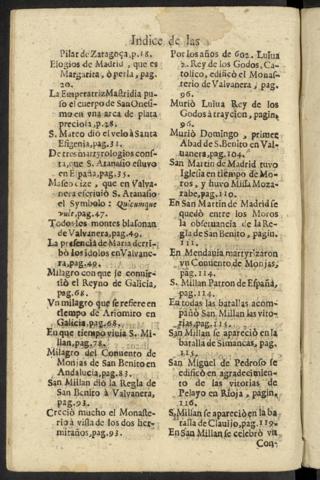 Indice de las
Pilar de Zaragoça, p.18.
Elogios de Madrid, que es
Margarita, ò perla, pag.
20.
La Emperatriz Mastridia pu-
so el cuerpo de San Onesi-
mo en vna arca de plata
preciosa, p.28.
S. Mateo diò el velo à Santa
Efigenia, pag.31.
De tres martyrologios cons-
ta, que S. Atanasio estuvo
en España, pag.35.
que en Valva-
nera escriuiò S. Atanasio
el Symbolo : Quicumque
vult, pag.47.
Todos los montes blasonan
de Valvanera, pag.49.
La presencia de Maria derri-
bò los idolos en Valvane-
ra, pag.49.
Milagro con que se conuir-
tiò el Reyno de Galicia,
pag.68.
Vn milagro que se refiere en
tiempo de Ariomiro en
Galicia, pag.68.
En que tiempo viuia S. Mi-
llan, pag.78.
Milagro del Conuento de
Monjas de San Benito en
Andalucia, pag.83.
San Millan diò la Regla de
San Benito à Valvanera,
pag.92.
Creciò mucho el Monaste-
rio à vista de los dos her-
mitaños, pag.93.
Por los años de 602. Luiua
2. Rey de los Godos, Ca-
tolico, edificò el Monas-
terio de Valvanera, pag.
96.
Muriò Luiua Rey de los
Godos à traycion, pagin.
96.
Muriò Domingo , primer
Abad de S. Benito en Val-
uanera, pag.104.
San Martin de Madrid tuvo
Iglesia en tiempo de Mo-
ros, y huvo Missa Moza-
rabe, pag.110.
En San Martin de Madrid se
quedò entre los Moros
la obseruancia de la Re-
gla de San Benito, pagin.
111.
En Mendauia martyrizaron
vn Conuento de Monjas,
pag.114.
S. Millan Patron de España,
pag.114.
En todas las batallas acom-
pañò San Millan las vito-
rias, pag.115.
San Millan se apareciò en la
batalla de Simancas, pag.
115.
San Miguel de Pedroso se
edificò en agradecimien-
to de las vitorias de
Pelayo en Rioja , pagin.
116.
S. Millan se apareciò en la ba
talla de Clauijo, pag.119.
En San Millan se celebrò vn
Con-